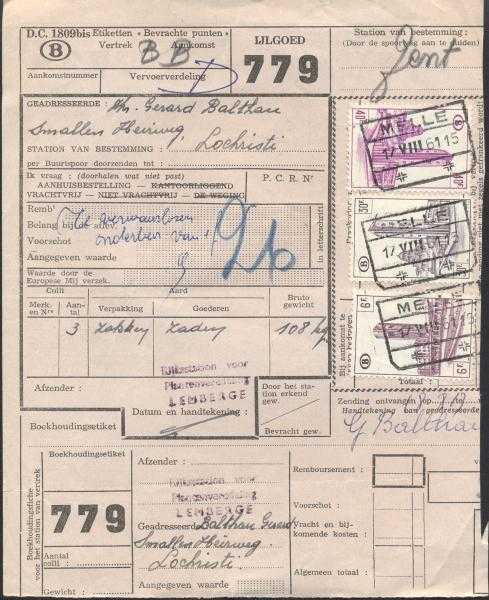 D.C. 1809bis
Etiketten • Bevrachte punten •
Vertrek Aankomst
B
B B
Aankomstnummer
Vervoerverdeling
IJLGOED
779
Station van bestemming :
(Door de spoorweg aan te duiden)
Gent
GEADRESSEERDE : Mr. Gerard Balthau
Smallen Heirweg
STATION VAN BESTEMMING : Lochristi
per Buurtspoor doorzenden tot :
Ik vraag : (doorhalen wat niet past)
AANHUISBESTELLING — KANTOORLIGGEND
VRACHTVRIJ — NIET VRACHTVRIJ — DE WEGING
P. C. R. Nr
Remb
Belang bij de aflev.
Voorschot
Aangegeven waarde
in letterschrift
Waarde door de
Europese Mij verzek.
Colli
Aard
Merk.
en Nrs
Aan-
tal
Verpakking
Goederen
Bruto
gewicht
3 zakken zaden 108 kg
Afzender :
Rijksstation voor
Plantenveredeling
LEMBERGE
Datum en handtekening :
Door het sta-
tion erkend
gew.
Bevracht gew.
MELLE
17 VIII 61 15
MELLE
17 VIII 61 15
MELLE
17 VIII 61
Bij aankomst te
Totaal :
Zending ontvangen op
Handtekening van geadresseerde
G Balthau
Boekhoudingsetiket
Boekhoudingsfiche
voor het station van vertrek
Boekhoudingsetiket
779
Aantal
colli :
Gewicht :
Afzender :
Rijksstation voor
Plantenveredeling
LEMBERGE
Geadresseerde Balthau Gerard
Smallen Heirweg
Lochristi
Aangegeven waarde
Remboursement :
Voorschot :
Vracht en bij-
komende kosten :
Algemeen totaal :